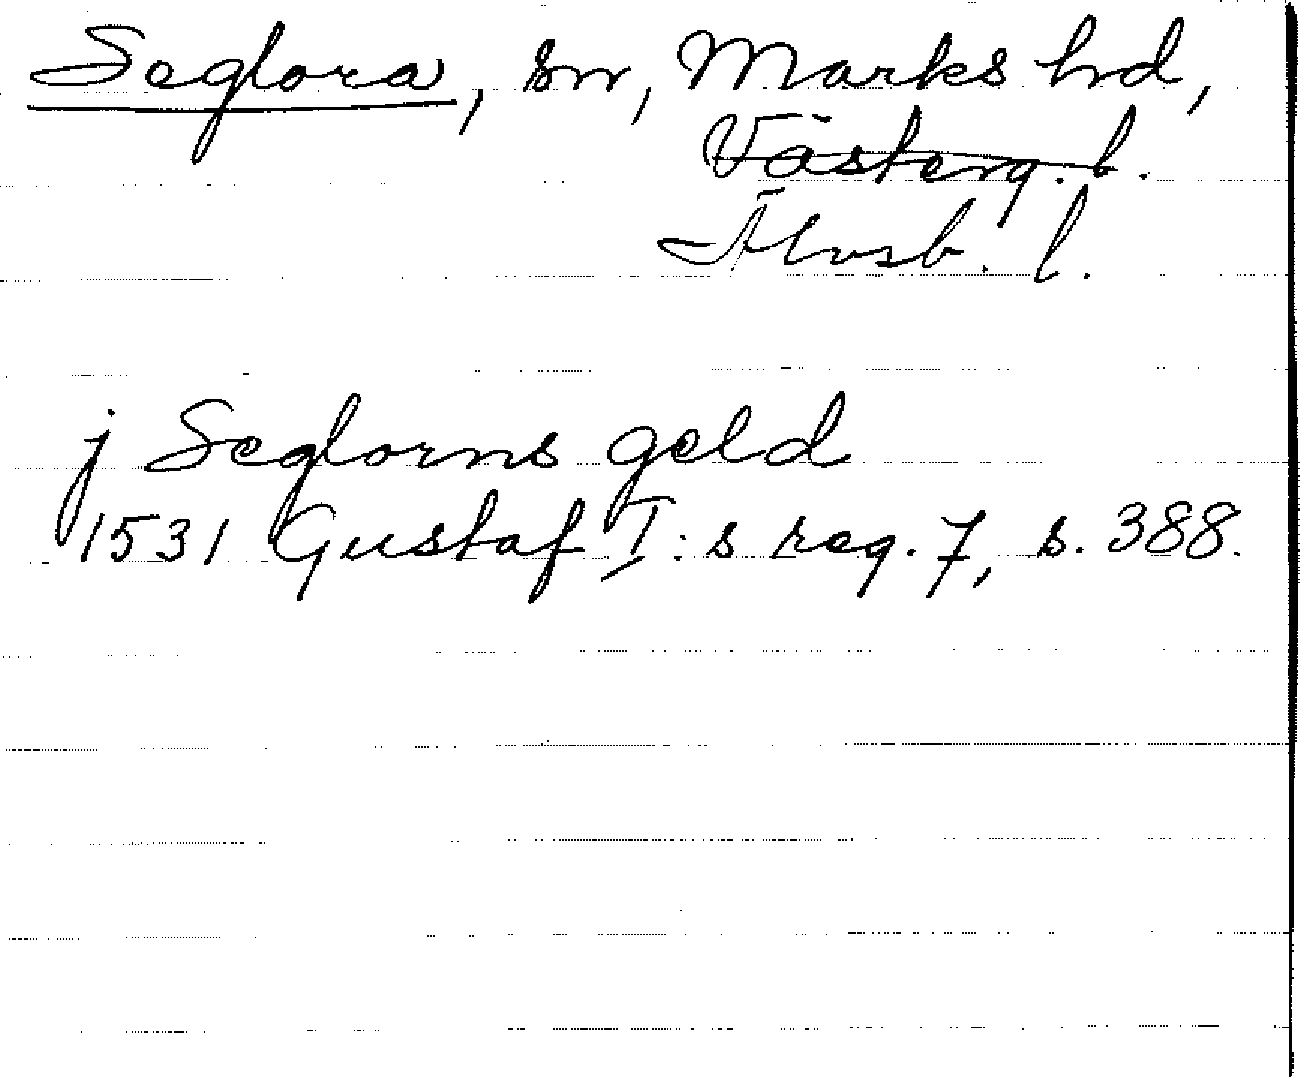 Seglora, sn, Marks hd,
Västerg. l.
Älvsb. l.
j Seglorns geld
1531 Gustaf I:s reg. 7, s. 388.